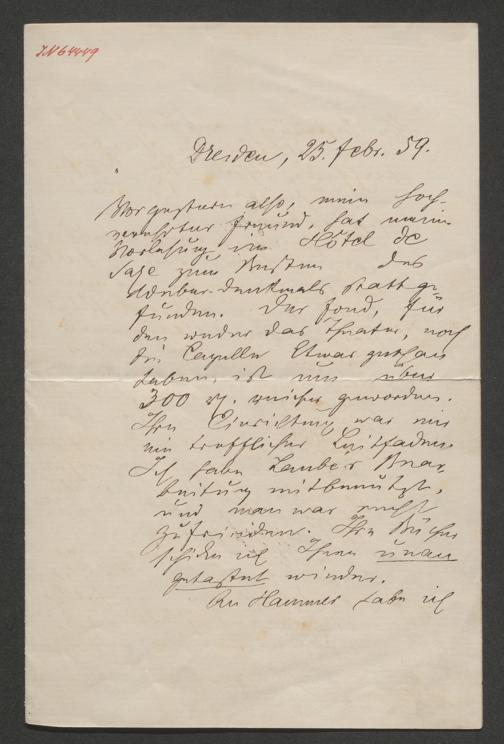 IN 64449
Dresden, 25. Febr. 59.
Vorgestern also, mein hoch-
verehrter Freund, hat meine
Vorlesung im Hôtel de
Saxe zum Besten des
Weber-Denkmals stattge-
funden. Der Fond, für
den weder das Theater, noch
die Capelle Etwas gethan
haben, ist um über
300 rg. reicher geworden.
Ihre Einrichtung war mir
ein trefflicher Leitfaden.
Ich habe Laube's Bear
beitung mitbenutzt,
und man war recht
zufrieden. Ihre Bücher
schicke ich Ihnen unan
getastet wieder.
An Hammer habe ich